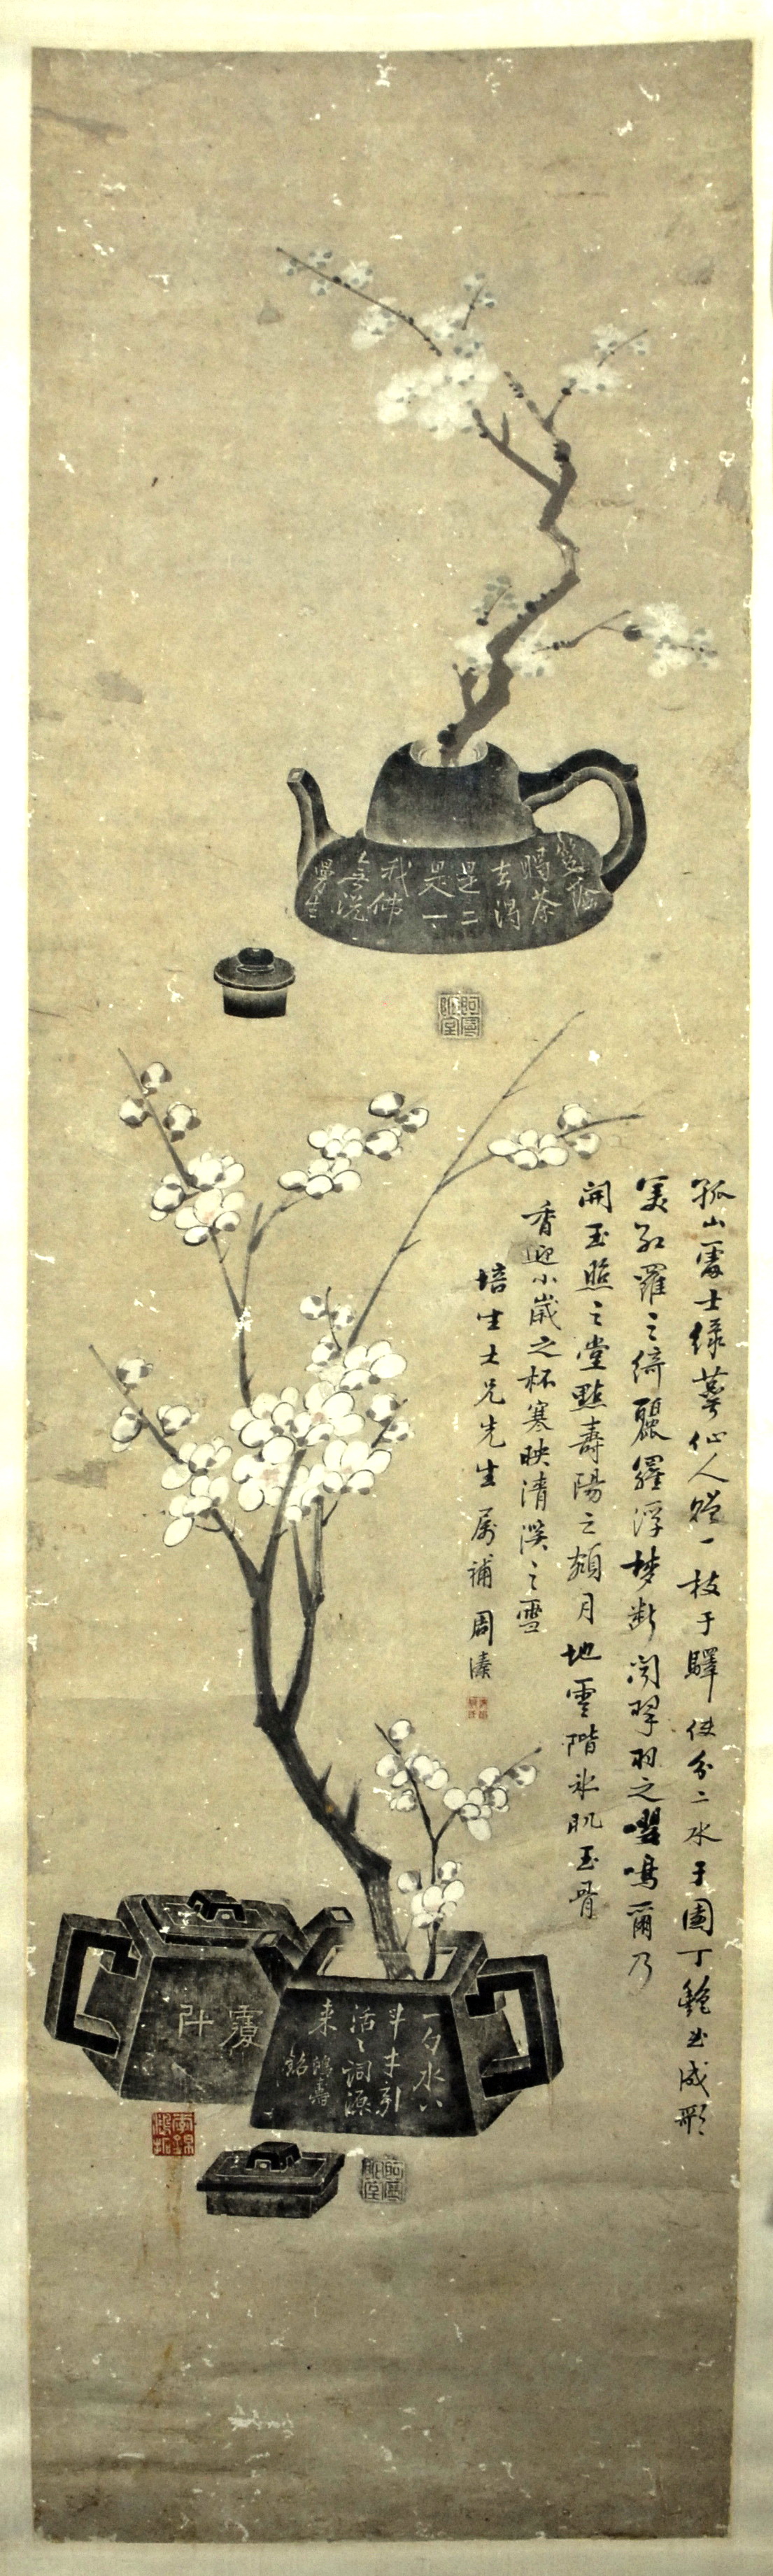 笠蔭
暍茶
去渴
是二
是一
我佛
無說
曼生
阿曼陀室
孤山處士綠萼仙人贈一枝于驛使分二水于園丁艷出成形
美紅羅之綺麗羅浮夢斷聞翠羽之嚶鳴爾乃
開玉照之堂點壽陽之額月地雲階氷肌玉骨
香迎小歲之杯寒映清溪之雪
培生士兄先生屬補 周
覆斗
一勺水八
斗才引
活〻詞源
來
銘
阿曼陀室